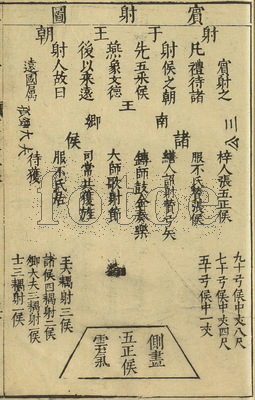 賓射圖
射于王朝
賓射之
凡禮待諸
射侯之朝
先五采侯
燕象文德
後以采遠
射人故曰
遠國屬
王
南
諸
侯
卿
三公
大夫
梓人張五正侯
繕人詔射贊弓矢
鎛師鼓金奏樂
大師歌射節
司常共獲旌
服不氏居
待獲
九十弓侯中丈八尺
七十弓侯中丈四尺
五十弓侯中一丈
王六耦射三侯
諸侯四耦射二侯
卿大夫三耦射一侯
士三耦射一侯
側畫
五正侯
雲氣
fotoe